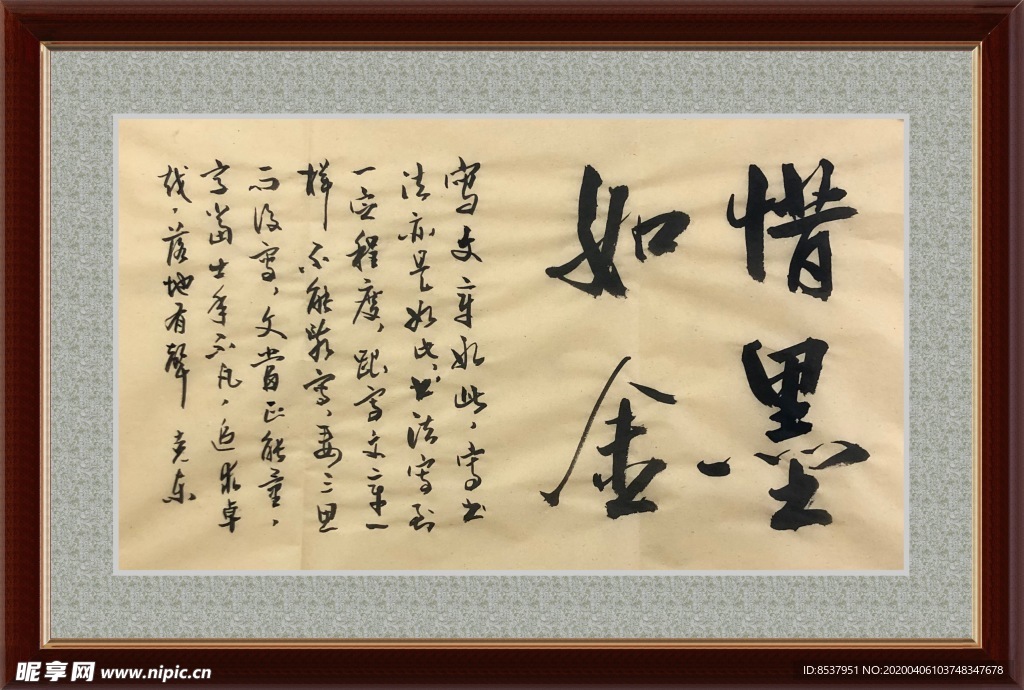 惜墨
如金
寫文章如此，寫书
法亦是如此，书法寫到
一定程度，跟寫文章一
样不能乱寫，要三思
而後寫，文当正能量，
字当出手不凡，追求卓
越，落地有聲 克东
昵享网 www.nipic.cn
ID:8537951 NO:20200406103748347678